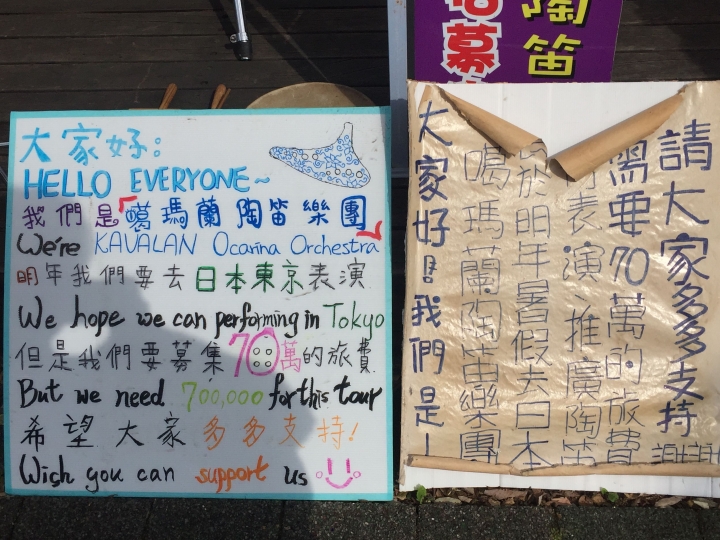 陶笛
募
大家好:
HELLO EVERYONE~
我們是「噶瑪蘭陶笛樂團」
We're KAVALAN Ocarina Orchestra
明年我們要去日本東京表演
We hope we can performing in Tokyo
但是我們要募集70萬的旅費
But we need 700,000 for this tour
希望大家多多支持!
Wish you can support us
大家好!我們是
噶瑪蘭陶笛樂團
於明年暑假去日本
表演、推廣陶笛
需要70萬的旅費
請大家多多支持
謝謝